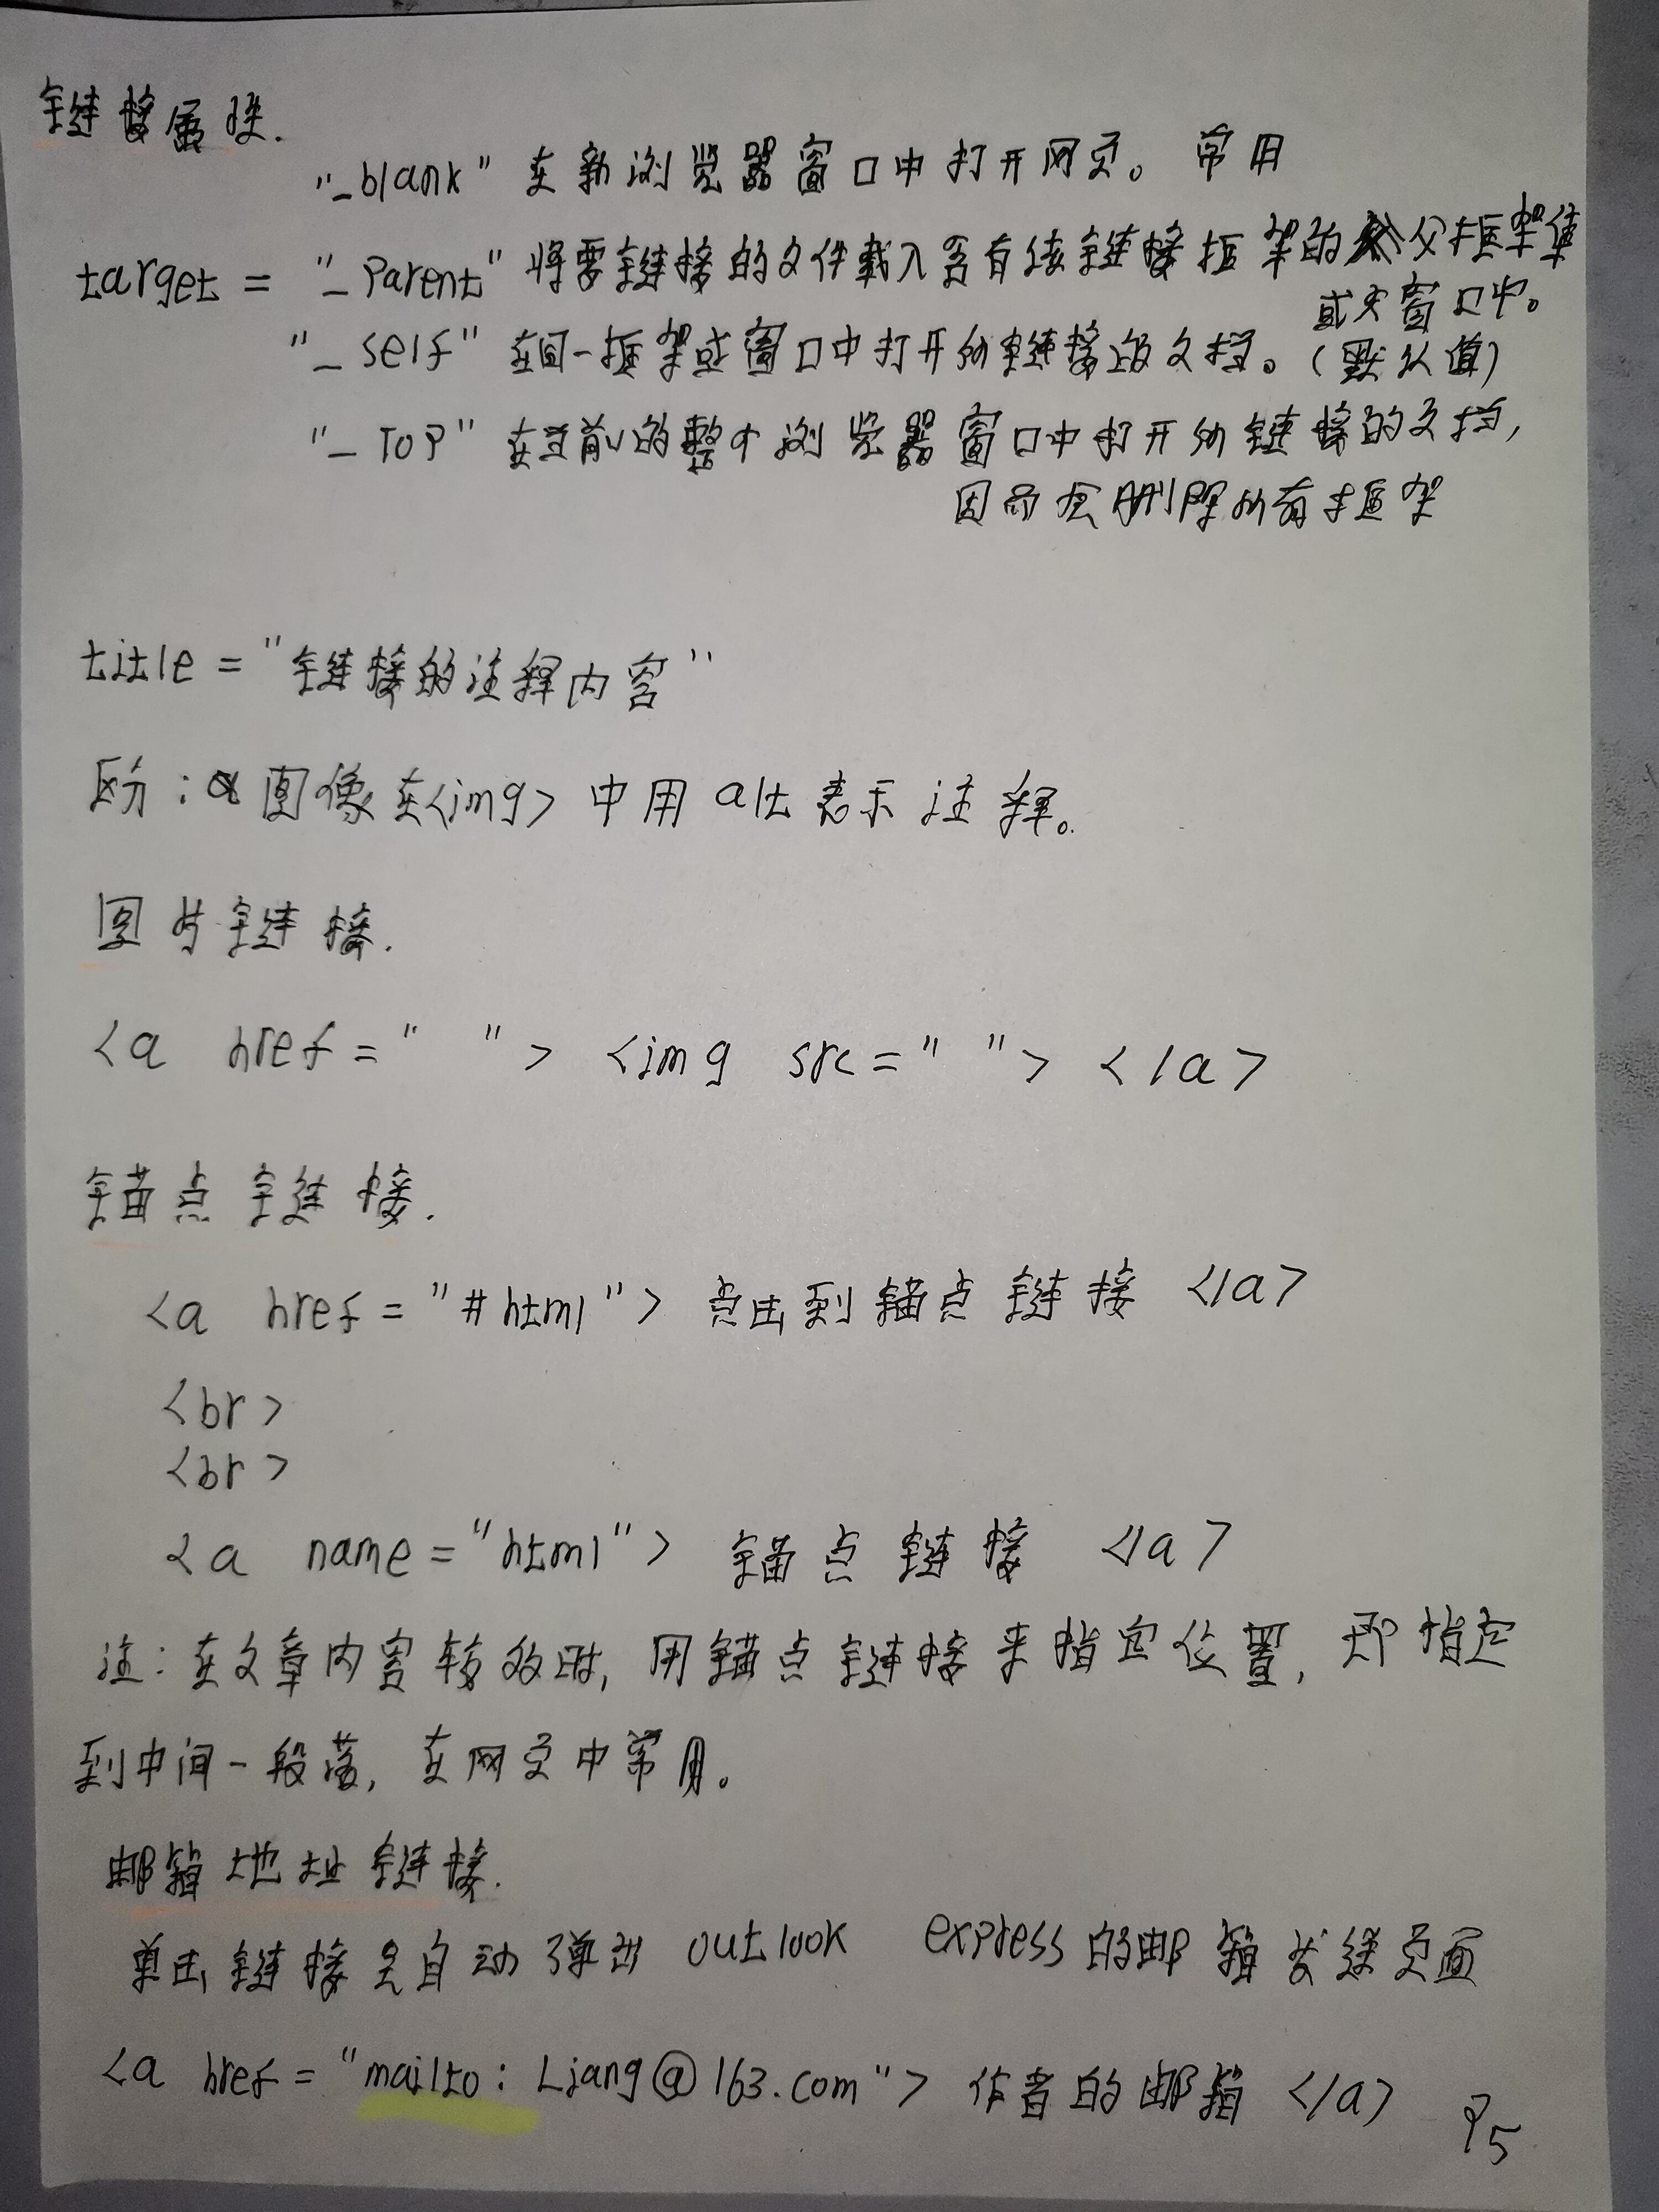 链接属性.
"_blank" 在新浏览器窗口中打开网页。 常用
target = "_Parent" 将要链接的文件载入含有该链接框架的父框架集
或父窗口中。
"_self" 在同一框架或窗口中打开所链接的文档。(默认值)
"_TOP" 在当前的整个浏览器窗口中打开所链接的文档,
因而会删除所有框架
title = "链接的注释内容"
区分: 图像在<img> 中用 alt 表示注释。
图片链接.
<a href=" "> <img src=" "> </a>
锚点链接.
<a href = "#html"> 点击到锚点链接 </a>
<br>
<br>
<a name="html"> 锚点链接 </a>
注: 在文章内容较多时, 用锚点链接来指定位置, 即指定
到中间一段落, 在网页中常用。
邮箱地址链接.
单击链接自动弹出 outlook express的邮箱发送页面
<a href = "mailto: Liang@163.com"> 作者的邮箱 </a>
P5